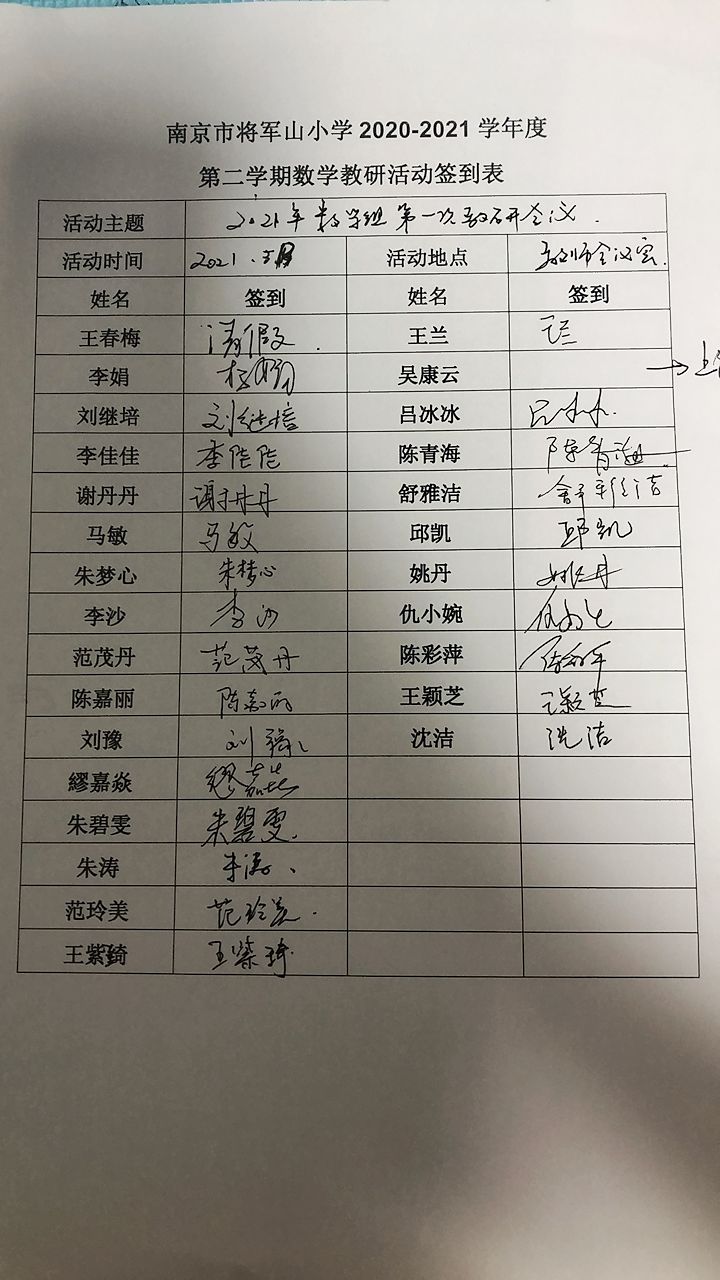 南京市将军山小学 2020-2021 学年度
第二学期数学教研活动签到表
活动主题 2021年数学组第一次教研会议.
活动时间 2021. 活动地点 教师会议室.
姓名 签到 姓名 签到
王春梅 请假. 王兰 王兰
李娟 吴康云 →上
刘继培 刘继培 吕冰冰 吕冰冰.
李佳佳 李佳佳 陈青海 陈青海
谢丹丹 谢丹丹 舒雅洁 舒雅洁
马敏 马敏 邱凯 邱凯
朱梦心 朱梦心 姚丹 姚丹
李沙 李沙 仇小婉 仇小婉
范茂丹 范茂丹 陈彩萍 陈彩萍
陈嘉丽 陈嘉丽 王颖芝 王颖芝
刘豫 刘 沈洁 沈洁
繆嘉焱 繆嘉焱
朱碧雯 朱碧雯.
朱涛 朱涛、
范玲美 范玲美.
王紫琦 王紫琦